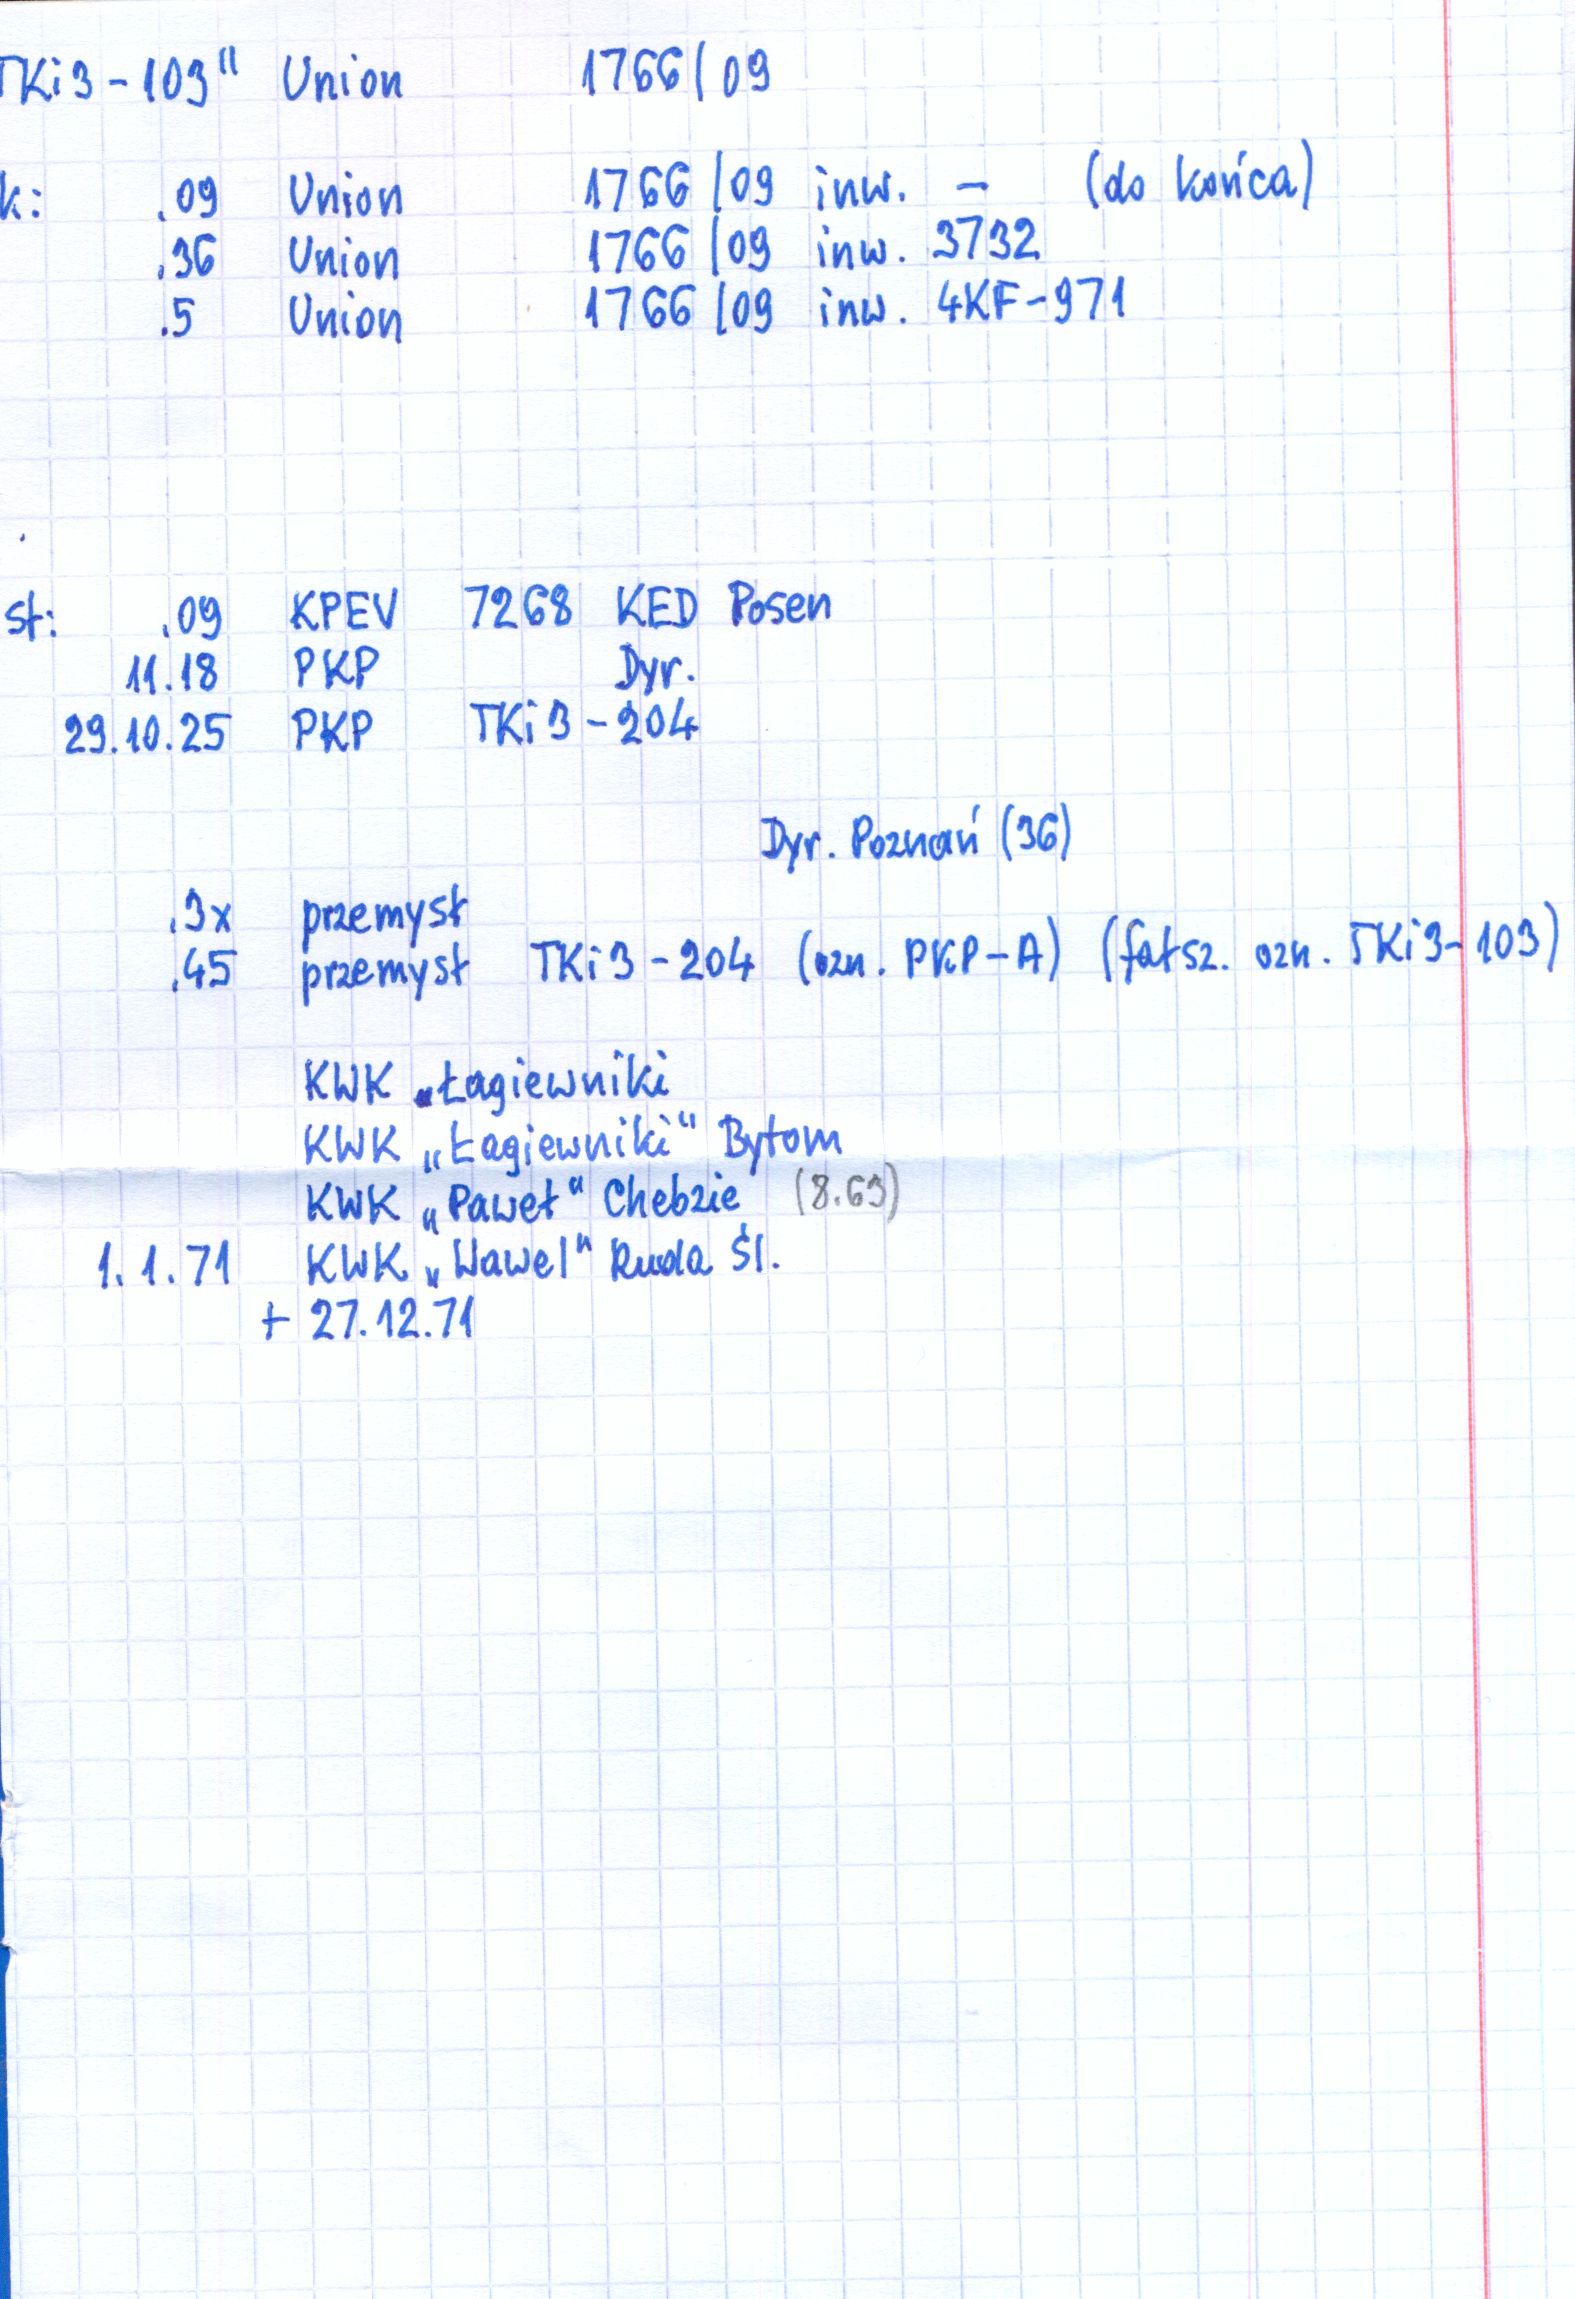 TKi3-103" Union 1766/09
k: .09 Union 1766/09 inw. - (do końca)
.36 Union 1766/09 inw. 3732
.5 Union 1766/09 inw. 4KF-971
st: .09 KPEV 7268 KED Posen
11.18 PKP Dyr.
29.10.25 PKP TKi3-204
Dyr. Poznań (36)
.3x przemysł
.45 przemysł TKi3-204 (ozn. PKP-A) (fałsz. ozn. TKi3-103)
KWK „Łagiewniki
KWK „Łagiewniki" Bytom
KWK „Paweł" Chebzie (8.63)
1.1.71 KWK „Wawel" Ruda Śl.
+ 27.12.71